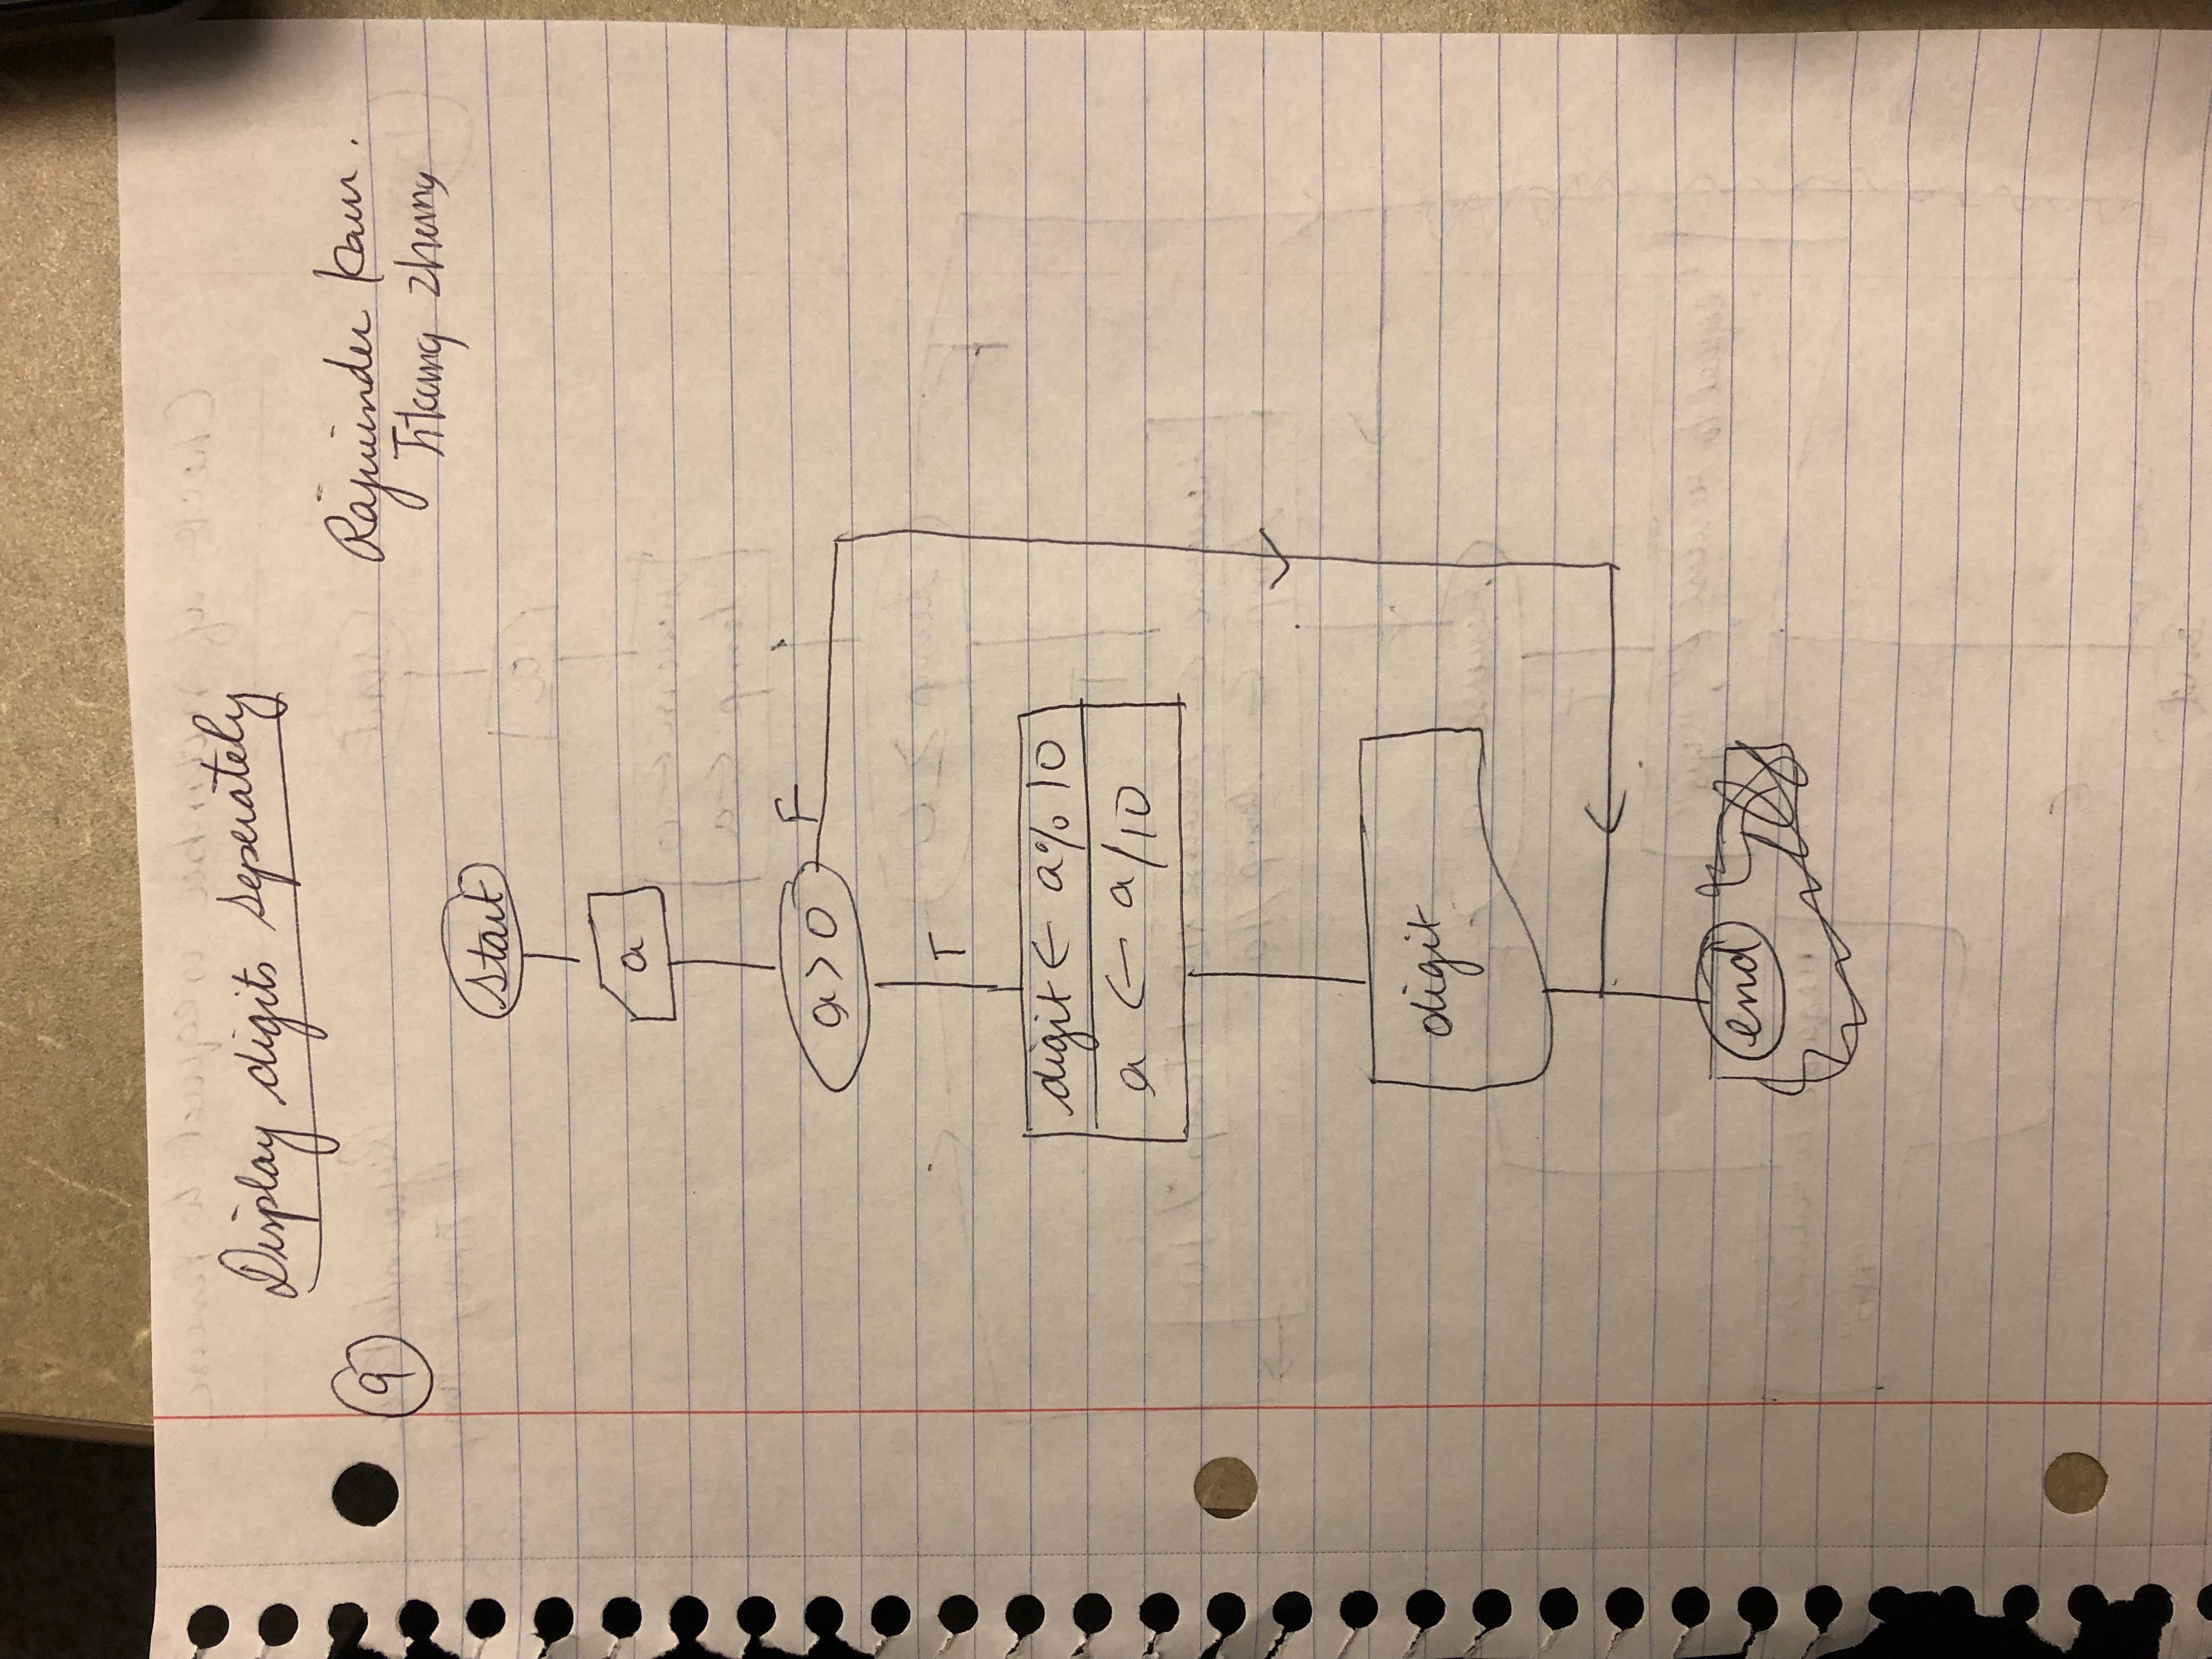 Display digits seperately
9
Rajwinder Kaur.
Zhang
start
a
a>0 F
T
digit ← a%10
a ← a/10
digit
end